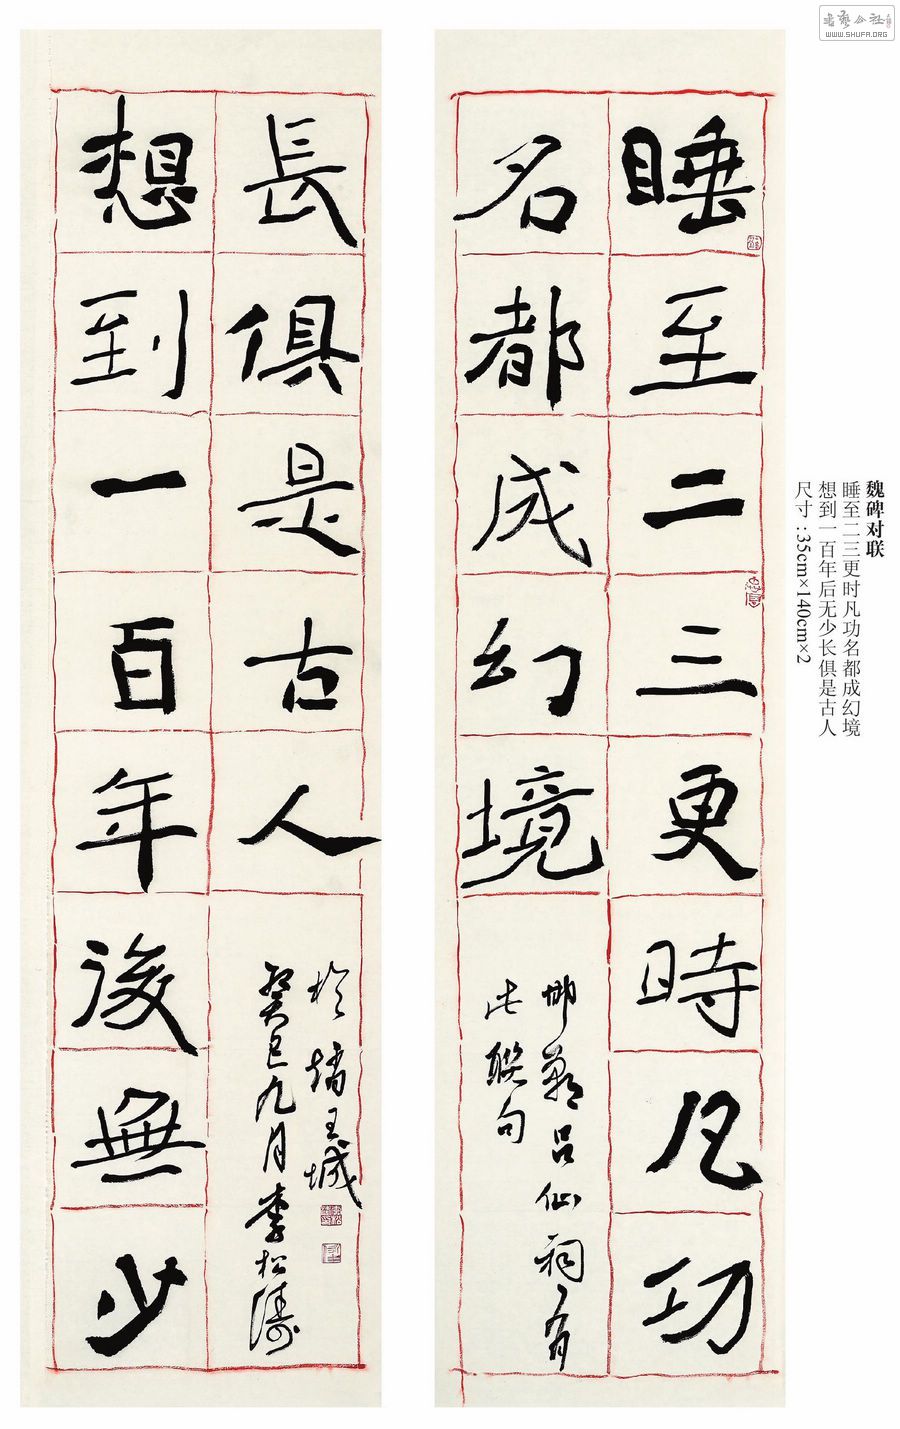 書藝公社
WWW.SHUFA.ORG
魏碑对联
睡至二三更时凡功名都成幻境
想到一百年后无少长俱是古人
尺寸:35cm×140cm×2
睡至二三更時凡功
名都成幻境
邯鄲呂仙祠有
此聯句
想到一百年後無少
長俱是古人
於王城
癸巳九月李松濤